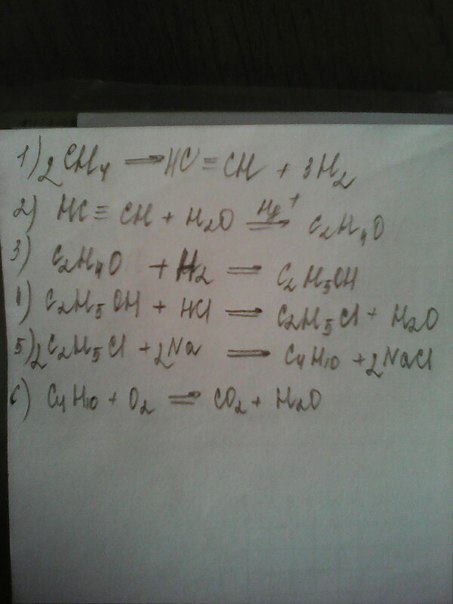 1) 2CH4 → HC≡CH + 3H2
2) HC≡CH + H2O →Hg+ C2H4O
3) C2H4O + H2 = C2H5OH
4) C2H5OH + HCl = C2H5Cl + H2O
5) 2C2H5Cl + 2Na = C4H10 + 2NaCl
6) C4H10 + O2 = CO2 + H2O